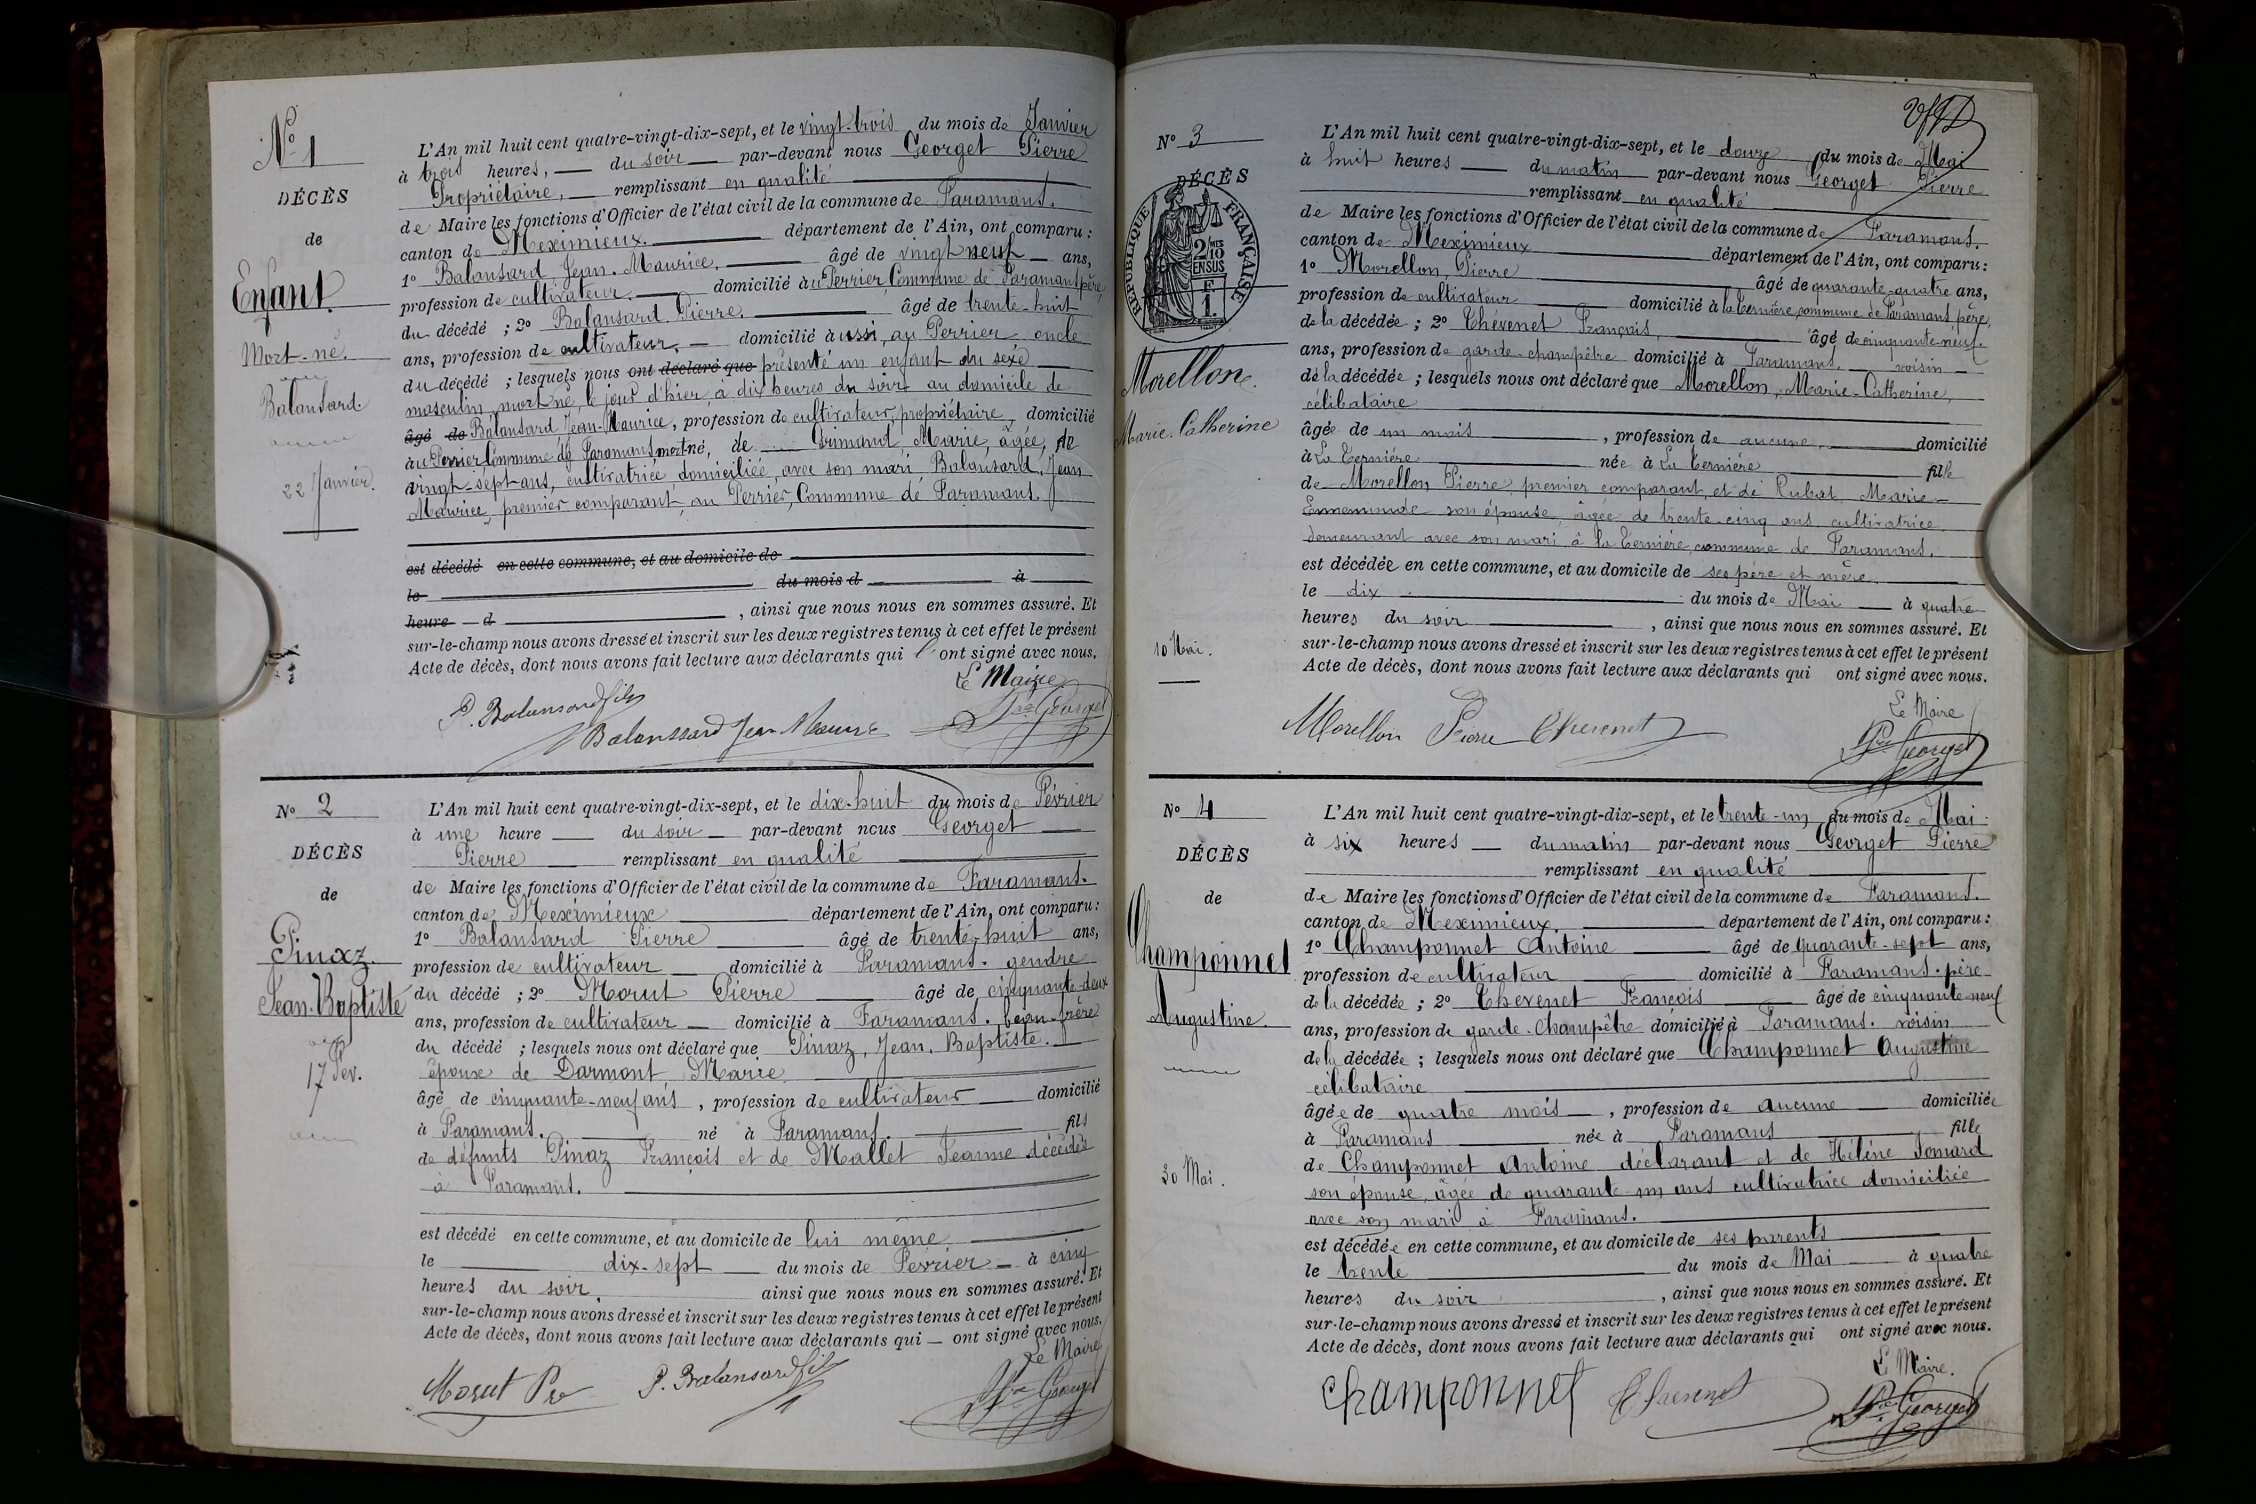 N° 1
DÉCÈS
de
Enfant
Mort-né.
Balansard.
22 Janvier.
L'An mil huit cent quatre-vingt-dix-sept, et le vingt-trois du mois de Janvier
à trois heures, du soir par-devant nous Georget Pierre
Propriétaire, remplissant en qualité
de Maire les fonctions d'Officier de l'état civil de la commune de Faramans.
canton de Meximieux. département de l'Ain, ont comparu :
1° Balansard Jean-Maurice, âgé de vingt neuf ans,
profession de cultivateur. domicilié au Perrier, Commune de Faramans père,
du décédé ; 2° Balansard Pierre, âgé de trente-huit
ans, profession de cultivateur, domicilié aussi, au Perrier oncle
du décédé ; lesquels nous ont déclaré que présenté un enfant du sexe
masculin, mort né, le jour d'hier, à dix heures du soir au domicile de
âgé de Balansard Jean-Maurice, profession de cultivateur, propriétaire, domicilié
au Perrier Commune de Faramans mort né, de Grimand, Marie, âgée, de
vingt-sept ans, cultivatrice domiciliée, avec son mari Balansard, Jean
Maurice, premier comparant, au Perrier, Commune de Faramans.
est décédé en cette commune, et au domicile de
le du mois d à
heure d , ainsi que nous nous en sommes assuré. Et
sur-le-champ nous avons dressé et inscrit sur les deux registres tenus à cet effet le présent
Acte de décès, dont nous avons fait lecture aux déclarants qui l'ont signé avec nous.
Le Maire
P. Balansard fils
Balanssard Jean Maurice
Pre Georget
N° 2
DÉCÈS
de
Pinaz
Jean-Baptiste
17 Fev.
L'An mil huit cent quatre-vingt-dix-sept, et le dix-huit du mois de Février
à une heure du soir par-devant nous Georget
Pierre remplissant en qualité
de Maire les fonctions d'Officier de l'état civil de la commune de Faramans.
canton de Meximieux département de l'Ain, ont comparu :
1° Balansard Pierre âgé de trente-huit ans,
profession de cultivateur domicilié à Faramans. gendre
du décédé ; 2° Morut Pierre âgé de cinquante-deux
ans, profession de cultivateur domicilié à Faramans. beau-frère
du décédé ; lesquels nous ont déclaré que Pinaz, Jean, Baptiste.
époux de Darmont, Marie
âgé de cinquante-neuf ans, profession de cultivateur domicilié
à Faramans. né à Faramans. fils
de défunts Pinaz François et de Mallet Jeanne décédée
à Faramans.
est décédé en cette commune, et au domicile de lui même
le dix-sept du mois de Février à cinq
heures du soir, ainsi que nous nous en sommes assuré. Et
sur-le-champ nous avons dressé et inscrit sur les deux registres tenus à cet effet le présent
Acte de décès, dont nous avons fait lecture aux déclarants qui ont signé avec nous.
Le Maire
Morut Pre P. Balansard fils
Pre Georget
N° 3
DÉCÈS
RÉPUBLIQUE FRANÇAISE
2/10 EN SUS
F
1.
Morellon.
Marie-Catherine
10 Mai.
L'An mil huit cent quatre-vingt-dix-sept, et le douze du mois de Mai
à huit heures du matin par-devant nous Georget Pierre
remplissant en qualité
de Maire les fonctions d'Officier de l'état civil de la commune de Faramans.
canton de Meximieux département de l'Ain, ont comparu :
1° Morellon, Pierre âgé de quarante-quatre ans,
profession de cultivateur domicilié à la Ternière, commune de Faramans, père,
de la décédée ; 2° Thévenet François, âgé de cinquante-neuf
ans, profession de garde-champêtre domicilié à Faramans. voisin
de la décédée ; lesquels nous ont déclaré que Morellon, Marie-Catherine,
célibataire
âgée de un mois, profession de aucune, domicilié
à La Ternière née à La Ternière fille
de Morellon Pierre premier comparant et de Rubat Marie-
Ennemonde son épouse, âgée de trente-cinq ans cultivatrice
demeurant avec son mari à la Ternière, commune de Faramans.
est décédée en cette commune, et au domicile de ses père et mère
le dix du mois de Mai à quatre
heures du soir, ainsi que nous nous en sommes assuré. Et
sur-le-champ nous avons dressé et inscrit sur les deux registres tenus à cet effet le présent
Acte de décès, dont nous avons fait lecture aux déclarants qui ont signé avec nous.
Le Maire
Morellon Pierre Thevenet
Pre Georget
N° 4
DÉCÈS
de
Champonnet
Augustine.
30 Mai.
L'An mil huit cent quatre-vingt-dix-sept, et le trente-un du mois de Mai
à six heures du matin par-devant nous Georget Pierre
remplissant en qualité
de Maire les fonctions d'Officier de l'état civil de la commune de Faramans.
canton de Meximieux. département de l'Ain, ont comparu :
1° Champonnet Antoine âgé de quarante-sept ans,
profession de cultivateur domicilié à Faramans. père
de la décédée ; 2° Thevenet François âgé de cinquante-neuf
ans, profession de garde-champêtre domicilié à Faramans. voisin
de la décédée ; lesquels nous ont déclaré que Champonnet Augustine
célibataire
âgée de quatre mois, profession de aucune domiciliée
à Faramans née à Faramans fille
de Champonnet Antoine déclarant et de Hélène Jomard
son épouse, âgée de quarante-un ans cultivatrice domiciliée
avec son mari à Faramans.
est décédée en cette commune, et au domicile de ses parents
le trente du mois de Mai à quatre
heures du soir, ainsi que nous nous en sommes assuré. Et
sur-le-champ nous avons dressé et inscrit sur les deux registres tenus à cet effet le présent
Acte de décès, dont nous avons fait lecture aux déclarants qui ont signé avec nous.
Le Maire.
Champonnet Thevenet
Pre Georget